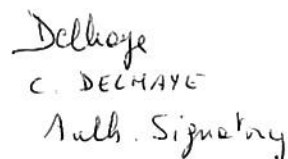 Delhaye
C. DELHAYE
Auth. Signatory